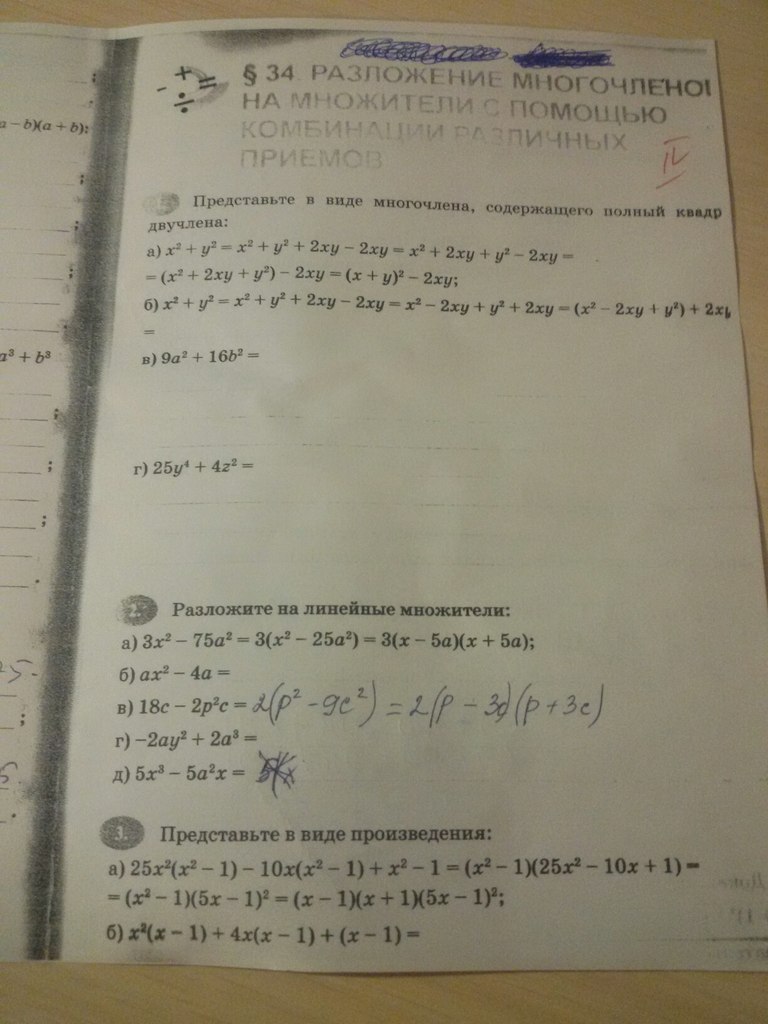 a – b)(a + b):
;
;
;
;
;
a³ + b³
;
;
;
.
5.
;
5
.
§ 34. РАЗЛОЖЕНИЕ МНОГОЧЛЕНО
НА МНОЖИТЕЛИ С ПОМОЩЬЮ
КОМБИНАЦИИ РАЗЛИЧНЫХ
ПРИЕМОВ
IV
Представьте в виде многочлена, содержащего полный квадр
двучлена:
а) x² + y² = x² + y² + 2xy – 2xy = x² + 2xy + y² – 2xy =
= (x² + 2xy + y²) – 2xy = (x + y)² – 2xy;
б) x² + y² = x² + y² + 2xy – 2xy = x² – 2xy + y² + 2xy = (x² – 2xy + y²) + 2xy
=
в) 9a² + 16b² =
г) 25y⁴ + 4z² =
2. Разложите на линейные множители:
а) 3x² – 75a² = 3(x² – 25a²) = 3(x – 5a)(x + 5a);
б) ax² – 4a =
в) 18c – 2p²c = 2(p² - 9c²) = 2(p - 3c)(p + 3c)
г) –2ay² + 2a³ =
д) 5x³ – 5a²x =
3. Представьте в виде произведения:
а) 25x²(x² – 1) – 10x(x² – 1) + x² – 1 = (x² – 1)(25x² – 10x + 1) =
= (x² – 1)(5x – 1)² = (x – 1)(x + 1)(5x – 1)²;
б) x²(x – 1) + 4x(x – 1) + (x – 1) =